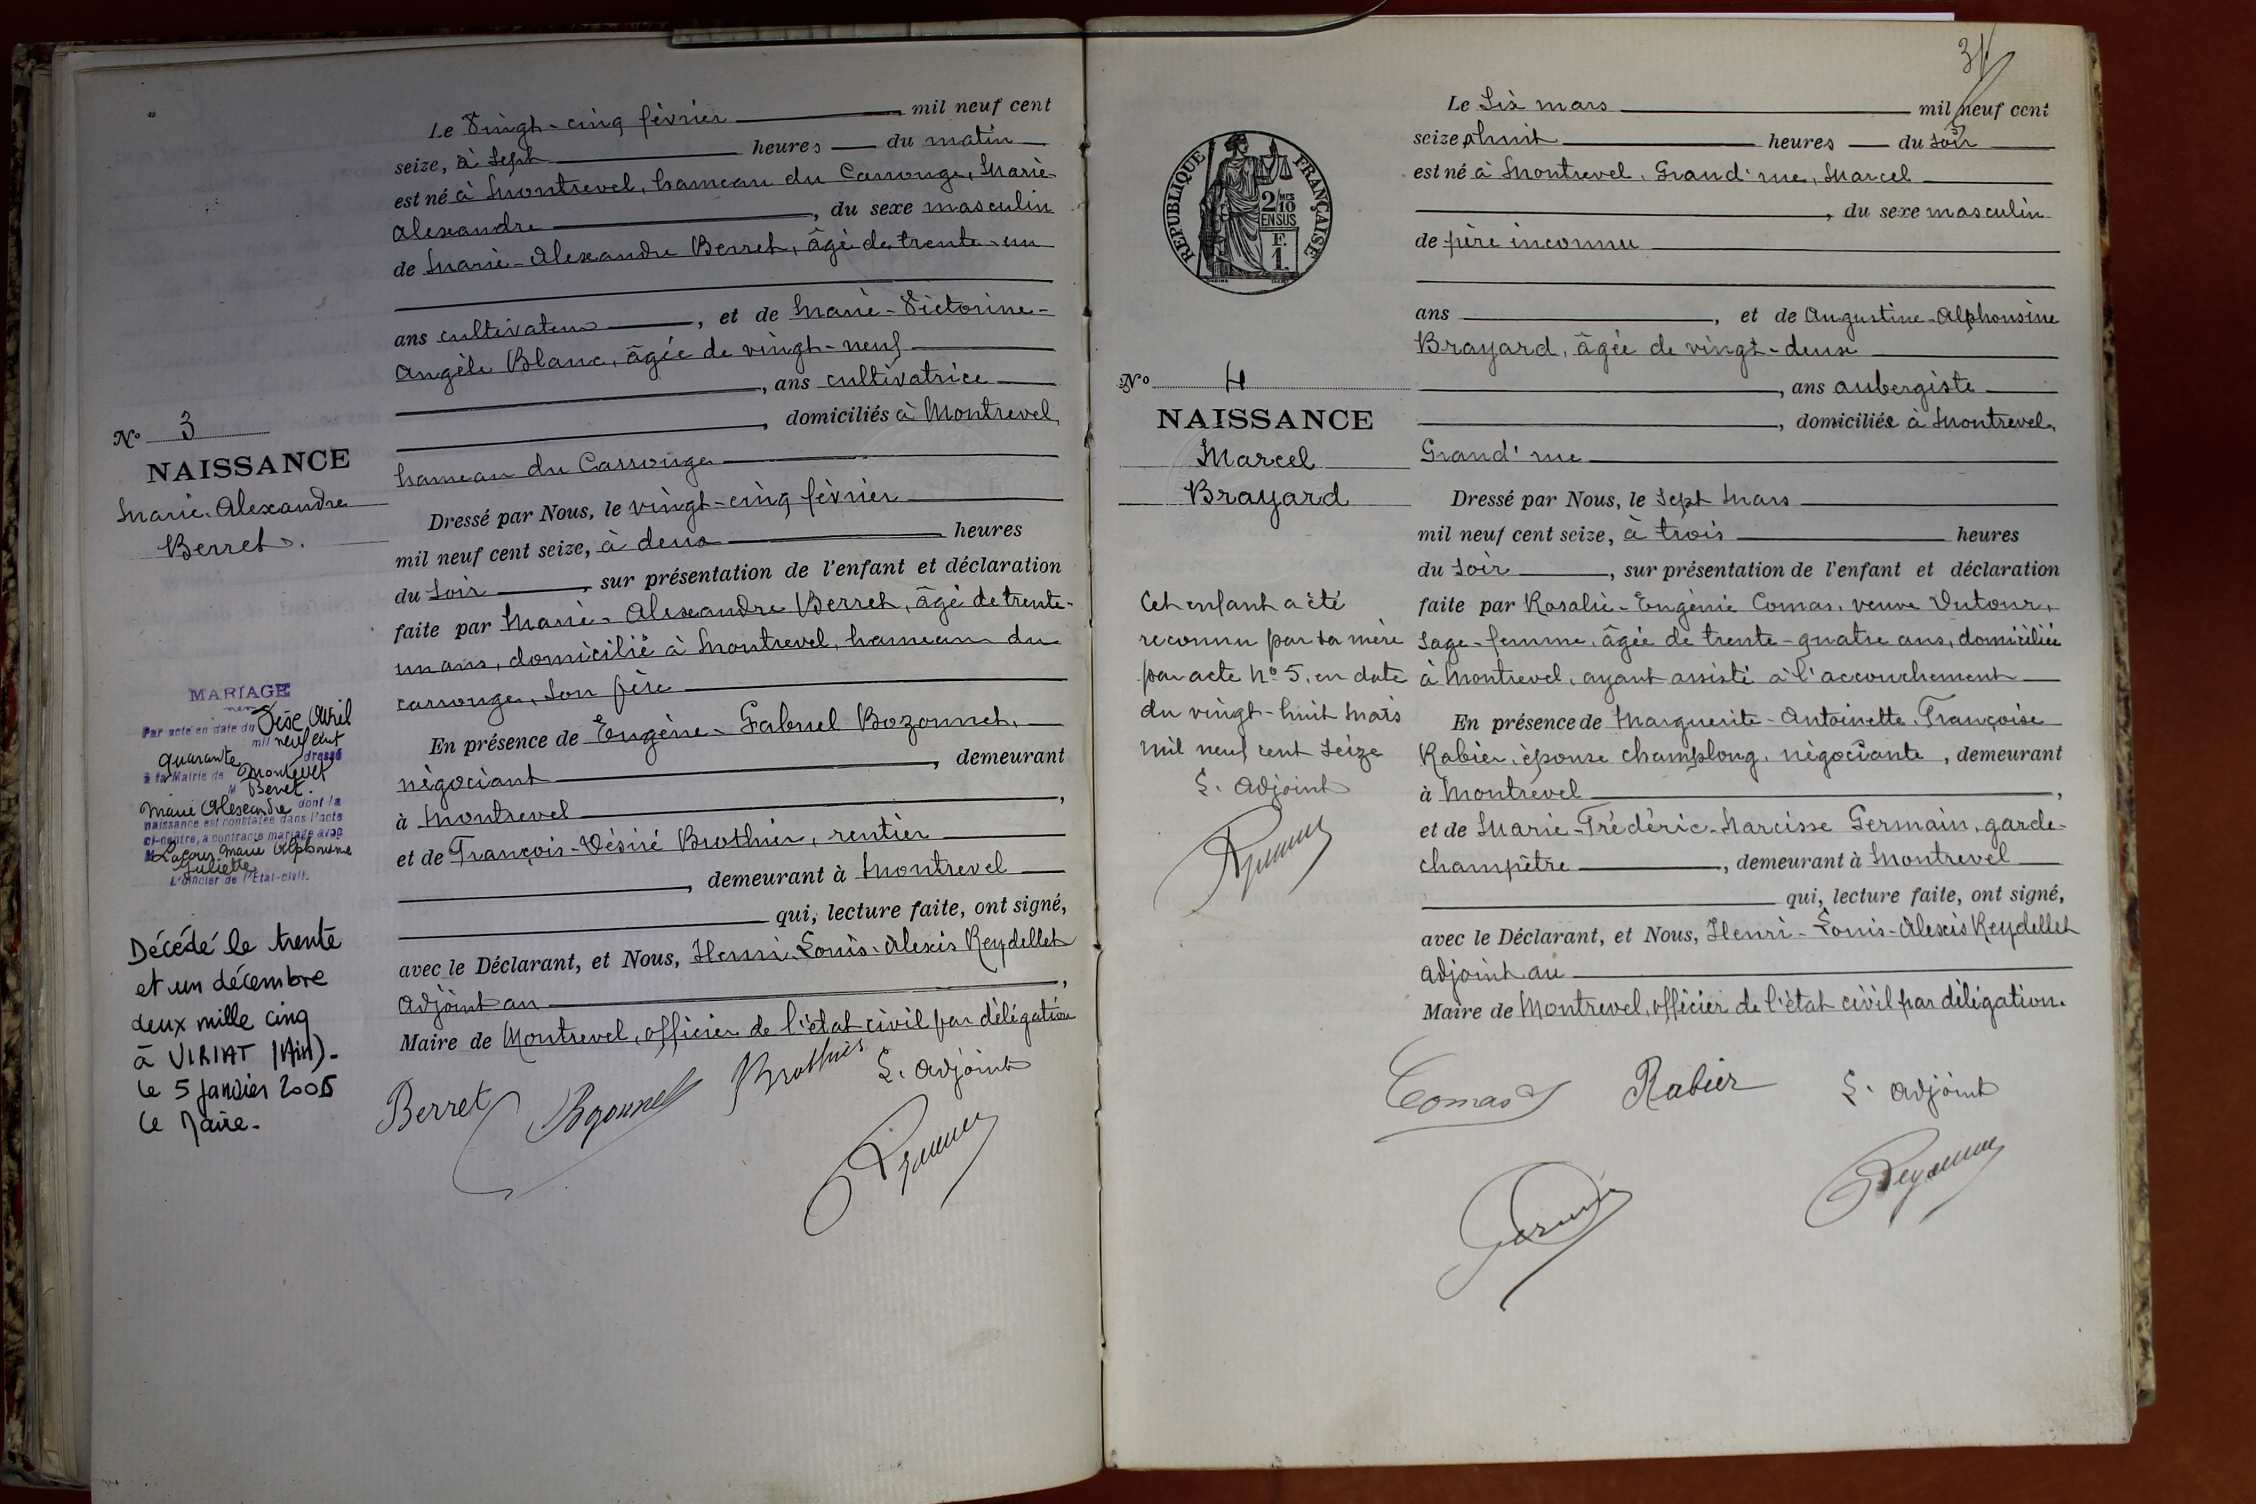 Le Vingt-cinq février mil neuf cent
seize, à Sept heures du matin
est né à Montrevel, hameau du Carrouge, Marie-
Alexandre, du sexe masculin
de Marie-Alexandre Berret, âgé de trente-un
ans cultivateur, et de Marie-Victorine-
Angèle Blanc, âgée de vingt-neuf
, ans cultivatrice
, domiciliés à Montrevel,
hameau du Carrouge
Dressé par Nous, le vingt-cinq février
mil neuf cent seize, à deux heures
du soir, sur présentation de l'enfant et déclaration
faite par Marie-Alexandre Berret, âgé de trente-
un ans, domicilié à Montrevel, hameau du
carrouge, son père
En présence de Eugène-Gabriel Bozonnet,
négociant, demeurant
à Montrevel,
et de François-Désiré Brothier, rentier
, demeurant à Montrevel
qui, lecture faite, ont signé,
avec le Déclarant, et Nous, Henri-Louis-Alexis Reydellet
adjoint au,
Maire de Montrevel, officier de l'état civil par délégation
Berret
Bozonnet
Brothier
L'adjoint
No 3
NAISSANCE
Marie-Alexandre
Berret.
MARIAGE
Par acte en date du Seize Avril
mil neuf cent
quarante dressé
à la Mairie de Montrevel
M Berret
Marie Alexandre dont la
naissance est constatée dans l'acte
ci-contre, a contracté mariage avec
M Marie Alphonsine
Juliette
L'Officier de l'Etat-civil.
Décédé le trente
et un décembre
deux mille cinq
à VIRIAT (Ain).
le 5 janvier 2006
Le Maire.
31
REPUBLIQUE FRANÇAISE
2/10MES
EN SUS
F.
1.
Le Six mars mil neuf cent
seize, à huit heures du soir
est né à Montrevel, Grand'rue, Marcel
, du sexe masculin
de père inconnu
ans, et de Augustine-Alphonsine
Brayard, âgée de vingt-deux
, ans aubergiste
, domiciliée à Montrevel,
Grand'rue
Dressé par Nous, le Sept Mars
mil neuf cent seize, à trois heures
du soir, sur présentation de l'enfant et déclaration
faite par Rosalie-Eugénie Comas, veuve Dutour,
sage-femme, âgée de trente-quatre ans, domiciliée
à Montrevel, ayant assisté à l'accouchement
En présence de Marguerite-Antoinette-Françoise
Rabier, épouse Champlong, négociante, demeurant
à Montrevel,
et de Marie-Frédéric-Narcisse Germain, garde-
champêtre, demeurant à Montrevel
qui, lecture faite, ont signé,
avec le Déclarant, et Nous, Henri-Louis-Alexis Reydellet
adjoint au
Maire de Montrevel, officier de l'état civil par délégation.
Comas
Rabier
L'adjoint
No 4
NAISSANCE
Marcel
Brayard
Cet enfant a été
reconnu par sa mère
par acte No 5, en date
du vingt-huit mars
mil neuf cent seize
L'adjoint